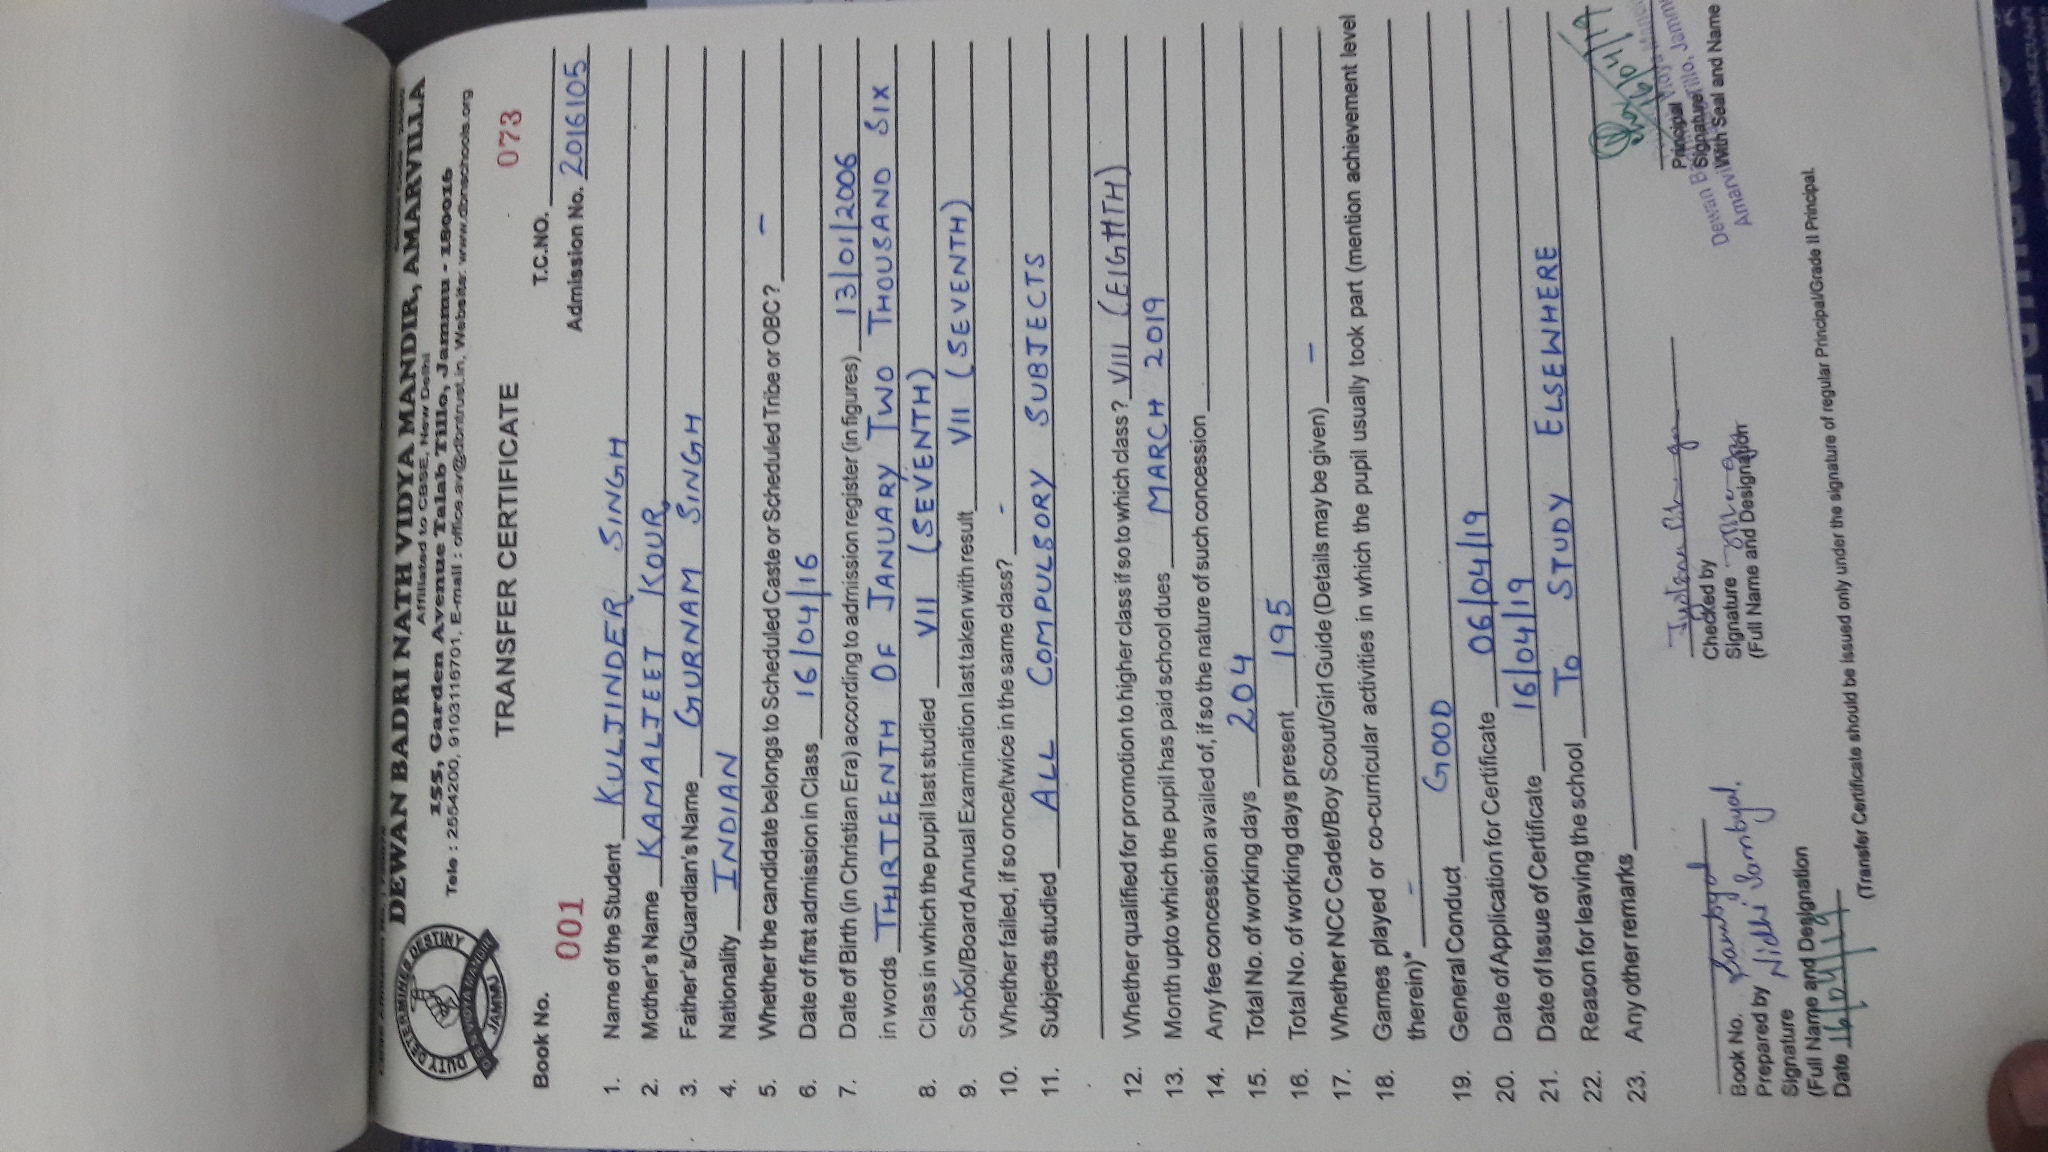 DEWAN BADRI NATH VIDYA MANDIR, AMARVILLA
155, Garden Avenue Talab Tillo, Jammu - 180016
Affiliated to CBSE, New Delhi
Tele : 2554200, 9103116701, E-mail : office.av@dbntrust.in, Website: www.dbnschools.org
DUTY DETERMINES DESTINY
D.B.N. VIDYA MANDIR
JAMMU
TRANSFER CERTIFICATE
Book No. 001 T.C.NO. 073
Admission No. 2016105
1. Name of the Student KULJINDER SINGH
2. Mother's Name KAMALJEET KOUR
3. Father's/Guardian's Name GURNAM SINGH
4. Nationality INDIAN
5. Whether the candidate belongs to Scheduled Caste or Scheduled Tribe or OBC? -
6. Date of first admission in Class 16/04/16
7. Date of Birth (in Christian Era) according to admission register (in figures) 13/01/2006
in words THIRTEENTH OF JANUARY TWO THOUSAND SIX
8. Class in which the pupil last studied VII (SEVENTH)
9. School/Board Annual Examination last taken with result VII (SEVENTH)
10. Whether failed, if so once/twice in the same class? -
11. Subjects studied ALL COMPULSORY SUBJECTS
12. Whether qualified for promotion to higher class if so to which class? VIII (EIGHTH)
13. Month upto which the pupil has paid school dues MARCH 2019
14. Any fee concession availed of, if so the nature of such concession
15. Total No. of working days 204
16. Total No. of working days present 195
17. Whether NCC Cadet/Boy Scout/Girl Guide (Details may be given) -
18. Games played or co-curricular activities in which the pupil usually took part (mention achievement level
therein)* -
19. General Conduct GOOD
20. Date of Application for Certificate 06/04/19
21. Date of Issue of Certificate 16/04/19
22. Reason for leaving the school TO STUDY ELSEWHERE
23. Any other remarks
16/04/19
Book No. Sambyal
Prepared by Nidhi Sambyal
Signature
(Full Name and Designation
Date 16/04/19
Checked by
Signature
(Full Name and Designation
Principal
Signature
With Seal and Name
Dewan Vidya
Tillo, Jammu
(Transfer Certificate should be issued only under the signature of regular Principal/Grade II Principal.